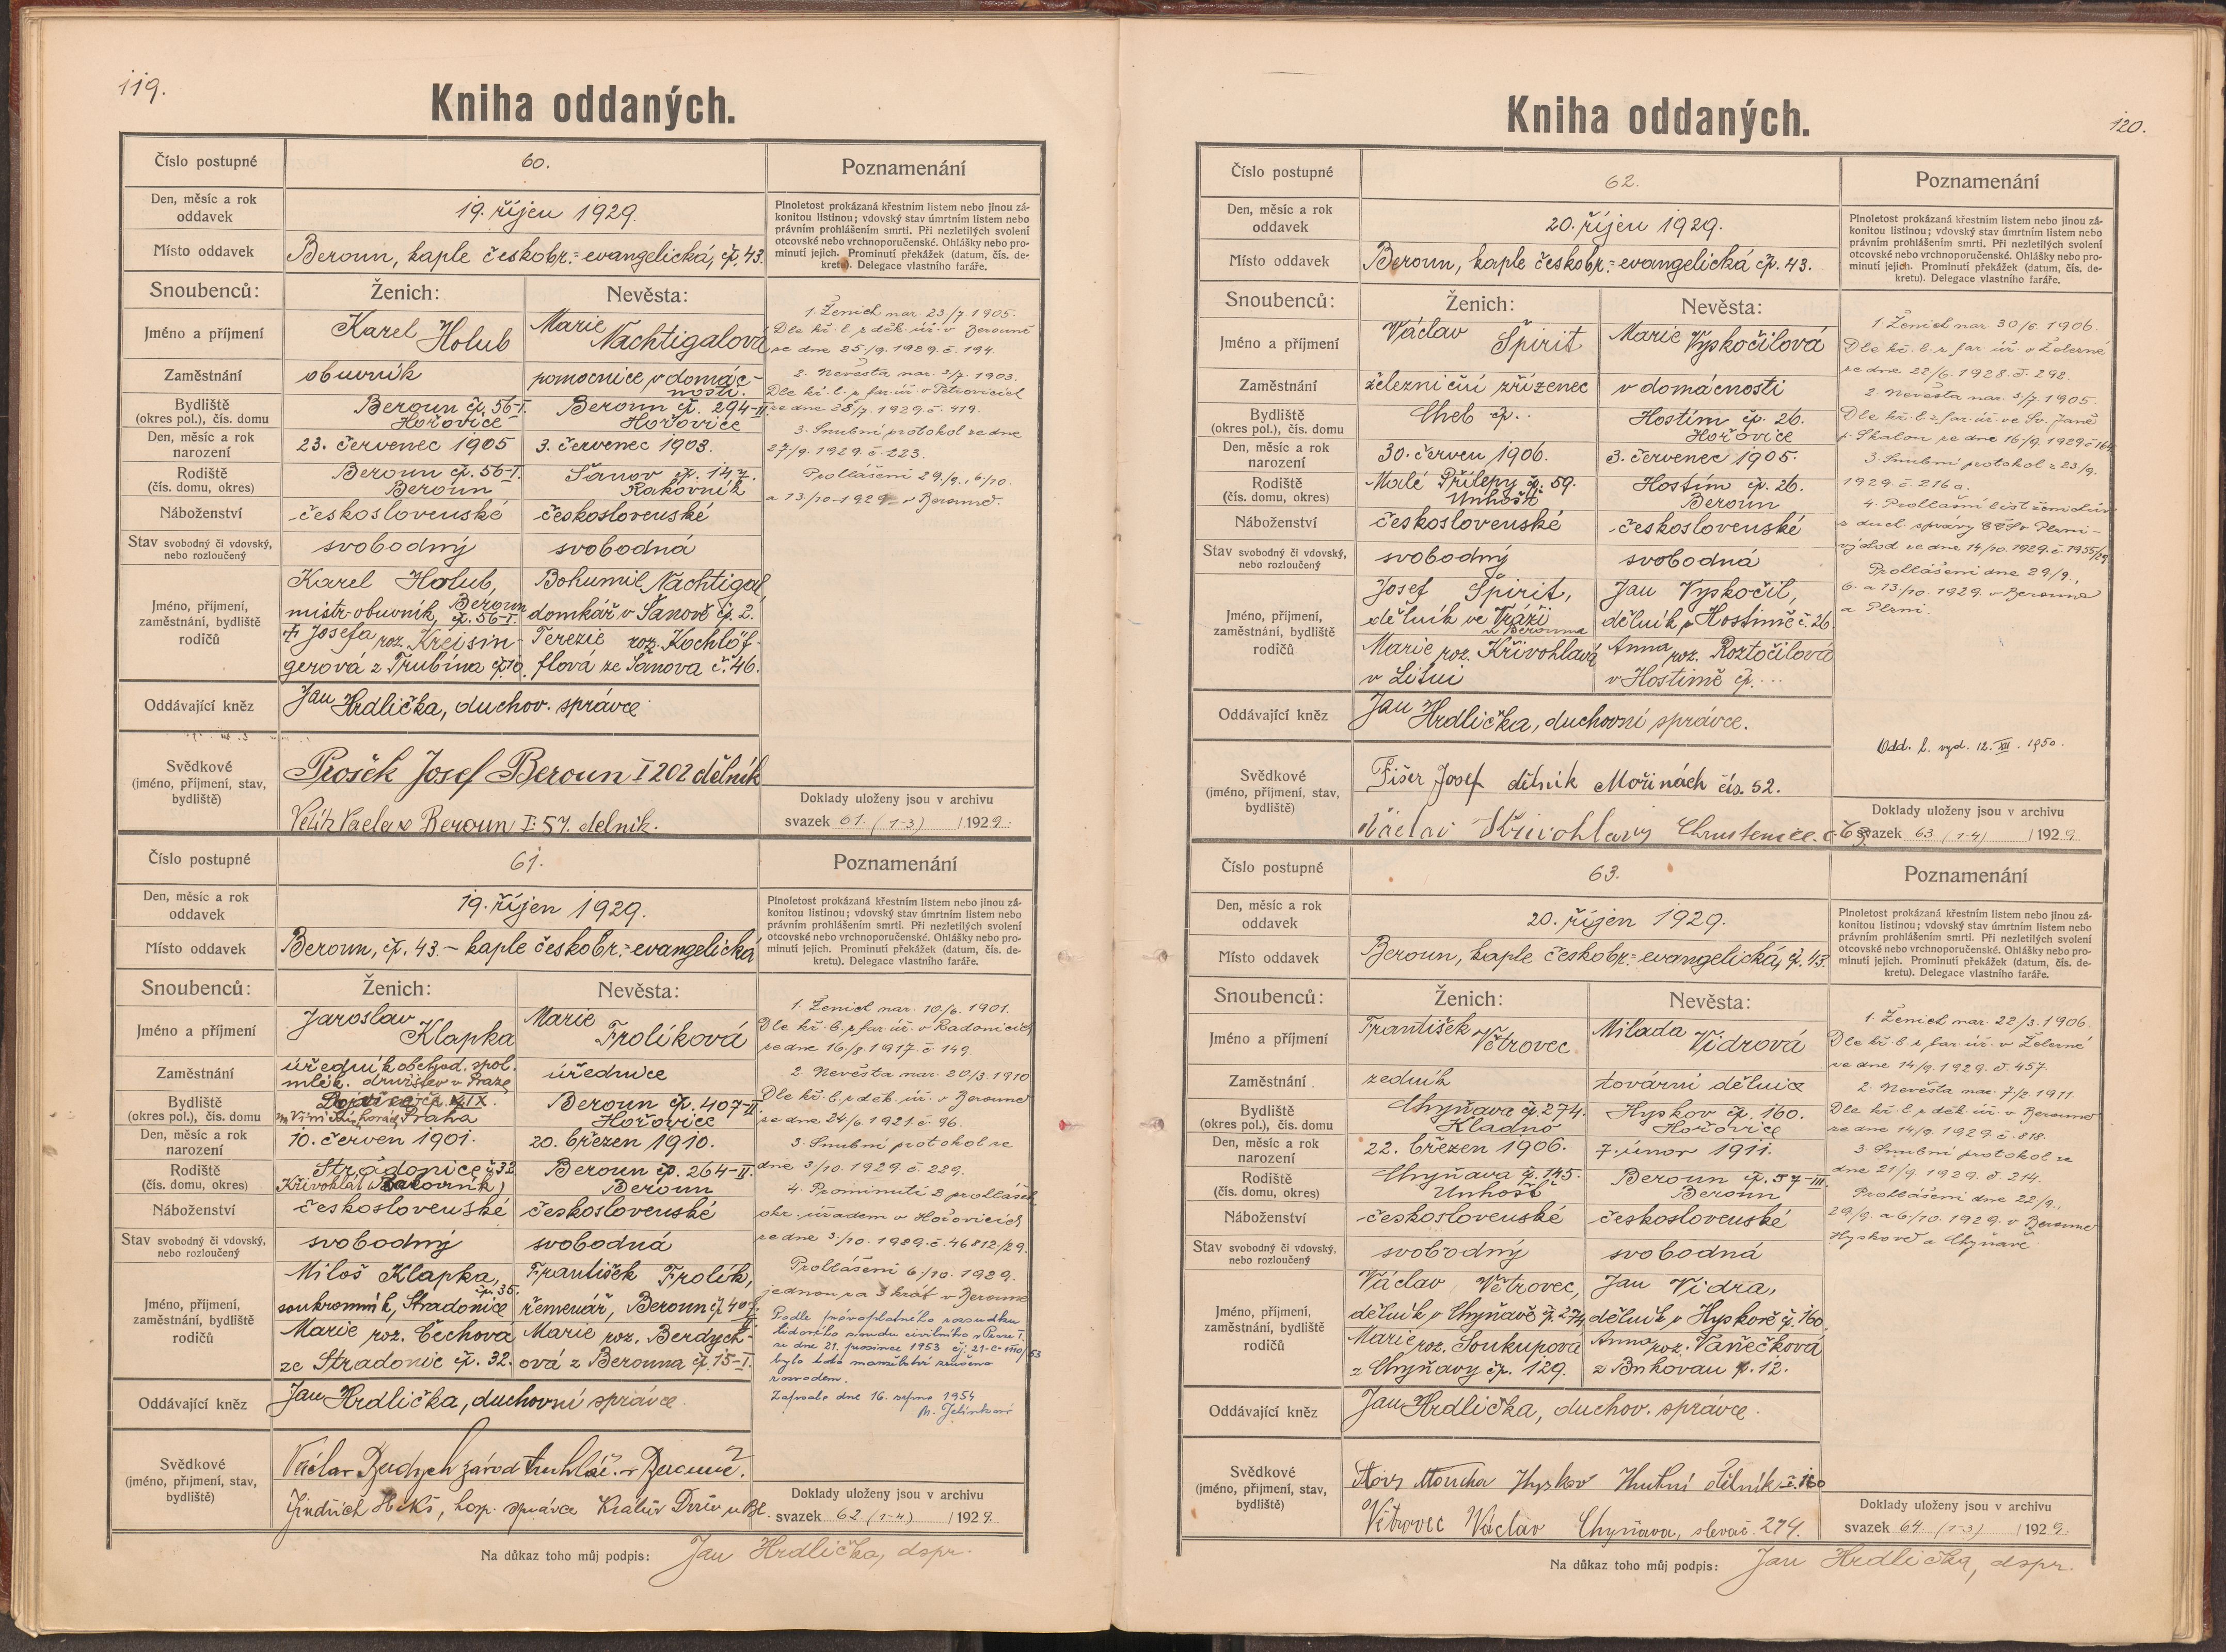 119.
Kniha oddaných.
Číslo postupné
60.
Poznamenání
Den, měsíc a rok
oddavek
19. říjen 1929.
Místo oddavek
Beroun, kaple českobr.=evangelická, čp. 43.
Plnoletost prokázaná křestním listem nebo jinou zá-
konitou listinou; vdovský stav úmrtním listem nebo
právním prohlášením smrti. Při nezletilých svolení
otcovské nebo vrchnoporučenské. Ohlášky nebo pro-
minutí jejich. Prominutí překážek (datum, čís. de-
kretu). Delegace vlastního faráře.
Snoubenců:
Ženich:
Nevěsta:
Jméno a příjmení
Karel Holub
Marie Nachtigalová
Zaměstnání
obuvník
pomocnice v domác-
nosti.
Bydliště
(okres pol.), čís. domu
Beroun čp. 56-I.
Hořovice
Beroun čp. 294-II.
Hořovice
Den, měsíc a rok
narození
23. červenec 1905
3. červenec 1903.
Rodiště
(čís. domu, okres)
Beroun čp. 56-I.
Beroun
Šanov čp. 147.
Rakovník
Náboženství
československé
československé
Stav svobodný či vdovský,
nebo rozloučený
svobodný
svobodná
Jméno, příjmení,
zaměstnání, bydliště
rodičů
Karel Holub,
mistr-obuvník, Beroun
čp. 56-I.
† Josefa roz. Kreisin-
gerová z Trubína čp. 10.
Bohumil Nachtigal,
domkář v Šanově čp. 2.
Terezie roz. Kochlöf-
flová ze Šanova č. 46.
1. Ženich nar. 23/7. 1905.
Dle kř. l. z děk. úř. v Berouně
ze dne 25/9. 1929. č. 194.
2. Nevěsta nar. 3/7. 1903.
Dle kř. l. z far. úř. v Petrovicích
ze dne 28/7. 1929. č. 419.
3. Snubní protokol ze dne
27/9. 1929. č. 223.
Prohlášeni 29/9., 6/10.
a 13/10. 1929. v Berouně.
Oddávající kněz
Jan Hrdlička, duchov. správce
Svědkové
(jméno, příjmení, stav,
bydliště)
Prošek Josef Beroun I 202 dělník
Beroun I. 57. delnik.
Doklady uloženy jsou v archivu
svazek 61. (1-3) /1929.
Číslo postupné
61.
Poznamenání
Den, měsíc a rok
oddavek
19. říjen 1929.
Místo oddavek
Beroun, čp. 43. - kaple českobr.=evangelická
Plnoletost prokázaná křestním listem nebo jinou zá-
konitou listinou; vdovský stav úmrtním listem nebo
právním prohlášením smrti. Při nezletilých svolení
otcovské nebo vrchnoporučenské. Ohlášky nebo pro-
minutí jejich. Prominutí překážek (datum, čís. de-
kretu). Delegace vlastního faráře.
Snoubenců:
Ženich:
Nevěsta:
Jméno a příjmení
Jaroslav Klapka
Marie Frolíková
Zaměstnání
úředník obchod. spol.
mlék. družstev v Praze
úřednice
Bydliště
(okres pol.), čís. domu
Praha
Beroun čp. 407-II.
Hořovice
Den, měsíc a rok
narození
10. červen 1901.
20. březen 1910.
Rodiště
(čís. domu, okres)
Stradonice č. 32
Křivoklát (Rakovník)
Beroun čp. 264-II.
Beroun
Náboženství
československé
československé
Stav svobodný či vdovský,
nebo rozloučený
svobodný
svobodná
Jméno, příjmení,
zaměstnání, bydliště
rodičů
Miloš Klapka,
čp. 35.
soukromník, Stradonice
Marie roz. Čechová
ze Stradonic čp. 32.
František Frolík,
řemenář, Beroun čp. 407
Marie roz. Berdych-
ová z Berouna čp. 15-I.
1. Ženich nar. 10/6. 1901.
Dle kř. l. z far. úř. v Radonicích
ze dne 16/8. 1917. č. 149.
2. Nevěsta nar. 20/3. 1910
Dle kř. l. z děk. úř. v Berouně
ze dne 24/6. 1921. č. 96.
3. Snubní protokol ze
dne 3/10. 1929. č. 229.
4. Prominutí 2 prohlášek
okr. úřadem v Hořovicích
ze dne 3/10. 1929. č. 46812/29.
Prohlášeni 6/10. 1929.
jednou za 3 krát v Berouně
Podle pravoplatného rozsudku
lidového soudu civilního v Praze I.
ze dne 21. prosince 1953
bylo toto manželství zrušeno
rozvodem.
Zapsáno dne 16. srpna 1954
M. Jelínková
Oddávající kněz
Jan Hrdlička, duchovní správce.
Svědkové
(jméno, příjmení, stav,
bydliště)
Václav Berdych závod truhlář. v Berouně.
Jindřich hosp. správce Králův Dvůr u Be.
Doklady uloženy jsou v archivu
svazek 62 (1-4) /1929.
Na důkaz toho můj podpis: Jan Hrdlička, dspr.
120.
Kniha oddaných.
Číslo postupné
62.
Poznamenání
Den, měsíc a rok
oddavek
20. říjen 1929.
Místo oddavek
Beroun, kaple českobr.=evangelická čp. 43.
Plnoletost prokázaná křestním listem nebo jinou zá-
konitou listinou; vdovský stav úmrtním listem nebo
právním prohlášením smrti. Při nezletilých svolení
otcovské nebo vrchnoporučenské. Ohlášky nebo pro-
minutí jejich. Prominutí překážek (datum, čís. de-
kretu). Delegace vlastního faráře.
Snoubenců:
Ženich:
Nevěsta:
Jméno a příjmení
Václav Špirit
Marie Vyskočilová
Zaměstnání
železniční zřízenec
v domácnosti
Bydliště
(okres pol.), čís. domu
Cheb čp..
Hostím čp. 26.
Hořovice
Den, měsíc a rok
narození
30. červen 1906.
3. červenec 1905.
Rodiště
(čís. domu, okres)
Malé Přílepy čp. 59.
Unhošť
Hostím čp. 26.
Beroun
Náboženství
československé
československé
Stav svobodný či vdovský,
nebo rozloučený
svobodný
svobodná
Jméno, příjmení,
zaměstnání, bydliště
rodičů
Josef Špirit,
dělník ve Vráži
u Berouna
Marie roz. Křivohlavá
v Lišni
Jan Vyskočil,
dělník v Hostímě č. 26.
Anna roz. Roztočilová
v Hostímě čp. ...
1. Ženich nar. 30/6. 1906.
Dle kř. l. z far. úř. v Železné
ze dne 22/6. 1928. č. 292.
2. Nevěsta nar. 3/7. 1905.
Dle kř. l. z far. úř. ve Sv. Janě
p. Skalou ze dne 16/9. 1929 č. 164
3. Snubní protokol z 23/9.
1929. č. 216a.
4. Prohlašní list ženichův
z duch. správy CČS v Plzni-
východ ze dne 14/10. 1929. č. 1955/29
Prohlášeni dne 29/9.,
6. a 13/10. 1929. v Berouně
a Plzni.
Odd. l. vyd. 12. XII. 1950.
Oddávající kněz
Jan Hrdlička, duchovní správce.
Svědkové
(jméno, příjmení, stav,
bydliště)
Fišer Josef dělník Mořinách čís. 52.
Václav Křivohlavy Chrustenice. č. 63.
Doklady uloženy jsou v archivu
svazek 63 (1-4) /1929
Číslo postupné
63.
Poznamenání
Den, měsíc a rok
oddavek
20. říjen 1929.
Místo oddavek
Beroun, kaple českobr.=evangelická, čp. 43.
Plnoletost prokázaná křestním listem nebo jinou zá-
konitou listinou; vdovský stav úmrtním listem nebo
právním prohlášením smrti. Při nezletilých svolení
otcovské nebo vrchnoporučenské. Ohlášky nebo pro-
minutí jejich. Prominutí překážek (datum, čís. de-
kretu). Delegace vlastního faráře.
Snoubenců:
Ženich:
Nevěsta:
Jméno a příjmení
František Větrovec
Milada Vidrová
Zaměstnání
zedník
tovární dělnice
Bydliště
(okres pol.), čís. domu
Chyňava čp. 274.
Kladno
Hyskov čp. 160.
Hořovice
Den, měsíc a rok
narození
22. březen 1906.
7. únor 1911.
Rodiště
(čís. domu, okres)
Chyňava čp. 145.
Unhošť
Beroun čp. 57-III.
Beroun
Náboženství
československé
československé
Stav svobodný či vdovský,
nebo rozloučený
svobodný
svobodná
Jméno, příjmení,
zaměstnání, bydliště
rodičů
Václav Větrovec,
dělník v Chyňavě čp. 274,
Marie roz. Soukupová
z Chyňavy čp. 129.
Jan Vidra,
dělník v Hyskově čp. 160.
Anna roz. Vaňečková
z Bukovan č. 12.
1. Ženich nar. 22/3. 1906.
Dle kř. l. z far. úř. v Železné
ze dne 14/9. 1929. č. 457.
2. Nevěsta nar. 7/2. 1911.
Dle kř. l. z děk. úř. v Berouně
ze dne 14/9. 1929. č. 818.
3. Snubní protokol ze
dne 21/9. 1929. č. 214.
Prohlášeni dne 22/9.,
29/9. a 6/10. 1929. v Berouně
Hyskově a Chyňavě.
Oddávající kněz
Jan Hrdlička, duchov. správce.
Svědkové
(jméno, příjmení, stav,
bydliště)
Moucha Hyskov Hutní dělník č. 160
Větrovec Václav Chyňava, slevač. 274.
Doklady uloženy jsou v archivu
svazek 64 (1-3) /1929.
Na důkaz toho můj podpis: Jan Hrdlička, dspr.